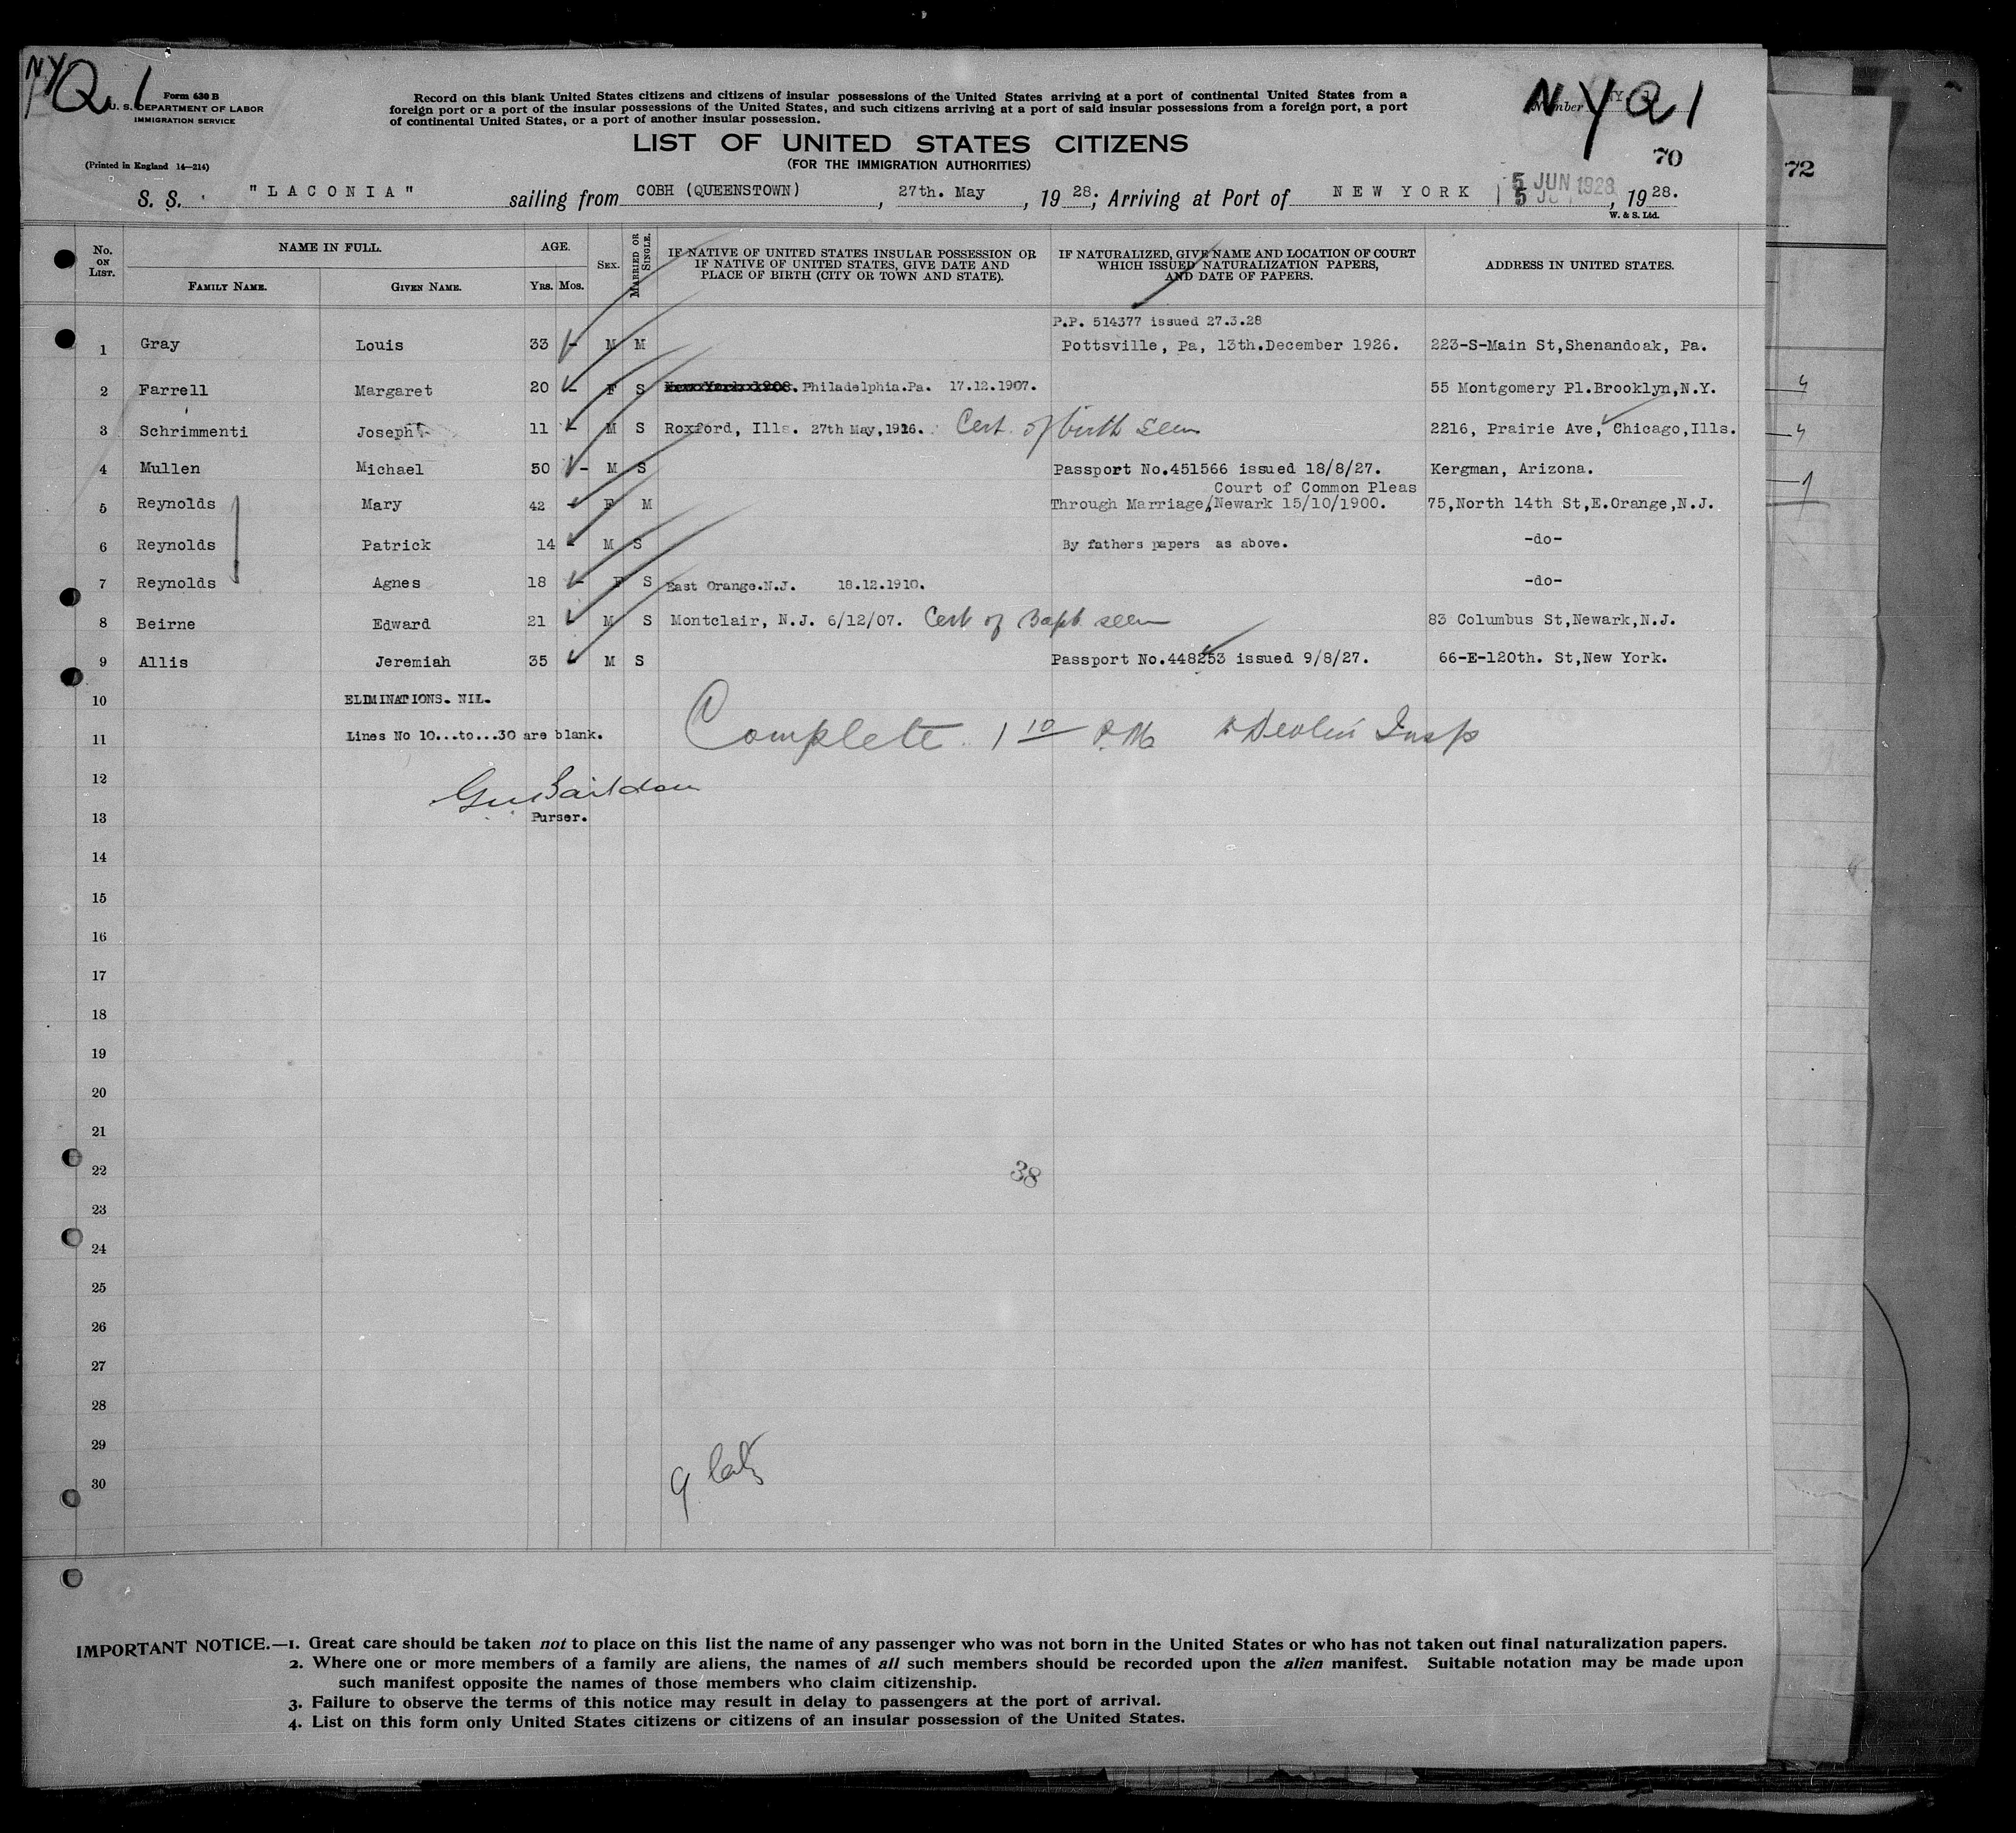 NYQ 1
Form 630 B
U. S. DEPARTMENT OF LABOR
IMMIGRATION SERVICE
(Printed in England 14—214)
Record on this blank United States citizens and citizens of insular possessions of the United States arriving at a port of continental United States from a
foreign port or a port of the insular possessions of the United States, and such citizens arriving at a port of said insular possessions from a foreign port, a port
of continental United States, or a port of another insular possession.
Number
NYQ1
LIST OF UNITED STATES CITIZENS
(FOR THE IMMIGRATION AUTHORITIES)
70
72
S. S. "LACONIA" sailing from COBH (QUEENSTOWN), 27th. May, 1928; Arriving at Port of NEW YORK 5 JUN 1928, 1928.
W. & S. Ltd.
No. ON LIST. NAME IN FULL. FAMILY NAME. GIVEN NAME. AGE. YRS. MOS. SEX. MARRIED OR SINGLE. IF NATIVE OF UNITED STATES INSULAR POSSESSION OR IF NATIVE OF UNITED STATES, GIVE DATE AND PLACE OF BIRTH (CITY OR TOWN AND STATE). IF NATURALIZED, GIVE NAME AND LOCATION OF COURT WHICH ISSUED NATURALIZATION PAPERS, AND DATE OF PAPERS. ADDRESS IN UNITED STATES.
P.P. 514377 issued 27.3.28
1 Gray Louis 33 - M M Pottsville, Pa, 13th.December 1926. 223-S-Main St,Shenandoak, Pa.
2 Farrell Margaret 20 - F S New York 1908. Philadelphia.Pa. 17.12.1907. 55 Montgomery Pl.Brooklyn,N.Y.
3 Schrimmenti Joseph 11 - M S Roxford, Ills. 27th May,1916. Cert. of birth seen 2216, Prairie Ave, Chicago,Ills.
4 Mullen Michael 50 - M S Passport No.451566 issued 18/8/27. Kergman, Arizona.
Court of Common Pleas
5 Reynolds Mary 42 - F M Through Marriage,/Newark 15/10/1900. 75,North 14th St,E.Orange,N.J.
6 Reynolds Patrick 14 - M S By fathers papers as above. -do-
7 Reynolds Agnes 18 - F S East Orange.N.J. 18.12.1910. -do-
8 Beirne Edward 21 - M S Montclair, N.J. 6/12/07. Cert of Bapt. seen 83 Columbus St,Newark,N.J.
9 Allis Jeremiah 35 - M S Passport No.448253 issued 9/8/27. 66-E-120th. St,New York.
10 ELIMINATIONS. NIL.
11 Lines No 10...to...30 are blank. Complete 1 10 P.M. Devlin Insp
12
13 Purser.
14
15
16
17
18
19
20
21
22 38
23
24
25
26
27
28
29
30 9
IMPORTANT NOTICE.—1. Great care should be taken not to place on this list the name of any passenger who was not born in the United States or who has not taken out final naturalization papers.
2. Where one or more members of a family are aliens, the names of all such members should be recorded upon the alien manifest. Suitable notation may be made upon
such manifest opposite the names of those members who claim citizenship.
3. Failure to observe the terms of this notice may result in delay to passengers at the port of arrival.
4. List on this form only United States citizens or citizens of an insular possession of the United States.